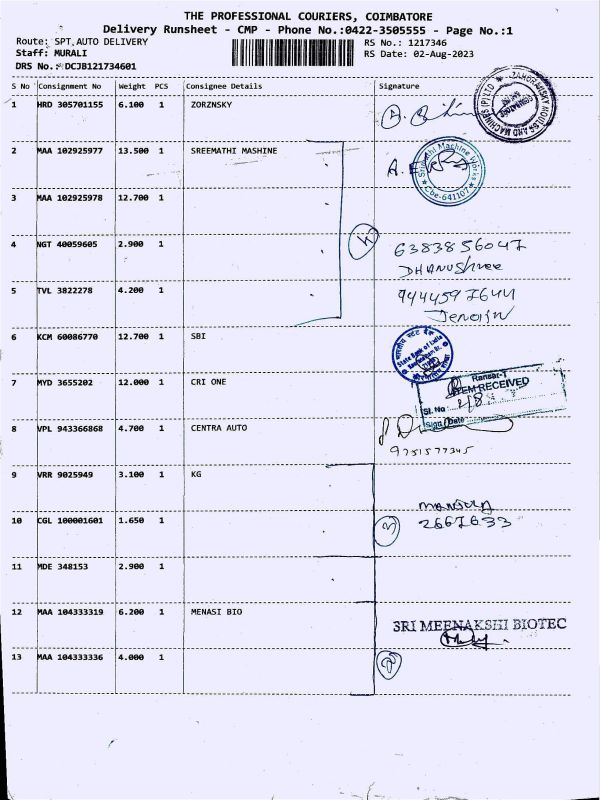 THE PROFESSIONAL COURIERS, COIMBATORE
Delivery Runsheet - CMP - Phone No.:0422-3505555 - Page No.:1
Route: SPT,AUTO DELIVERY
RS No.: 1217346
Staff: MURALI
RS Date: 02-Aug-2023
DRS No.: DCJB121734601
S No Consignment No Weight PCS Consignee Details Signature
1 HRD 305701155 6.100 1 ZORZNSKY
2 MAA 102925977 13.500 1 SREEMATHI MASHINE
Sreemathi Machine Works
Cbe-641107
3 MAA 102925978 12.700 1
4 NGT 40059605 2.900 1
6383856047
DHANUShree
5 TVL 3822278 4.200 1
9444597644
6 KCM 60086770 12.700 1 SBI
State Bank of India
7 MYD 3655202 12.000 1 CRI ONE
Ransar-1
ITEM RECEIVED
Sl. No
Sign / Date
8 VPL 943366868 4.700 1 CENTRA AUTO
9751577345
9 VRR 9025949 3.100 1 KG
MANJULA
10 CGL 100001601 1.650 1
3
2667633
11 MDE 348153 2.900 1
12 MAA 104333319 6.200 1 MENASI BIO
SRI MEENAKSHI BIOTEC
13 MAA 104333336 4.000 1
2